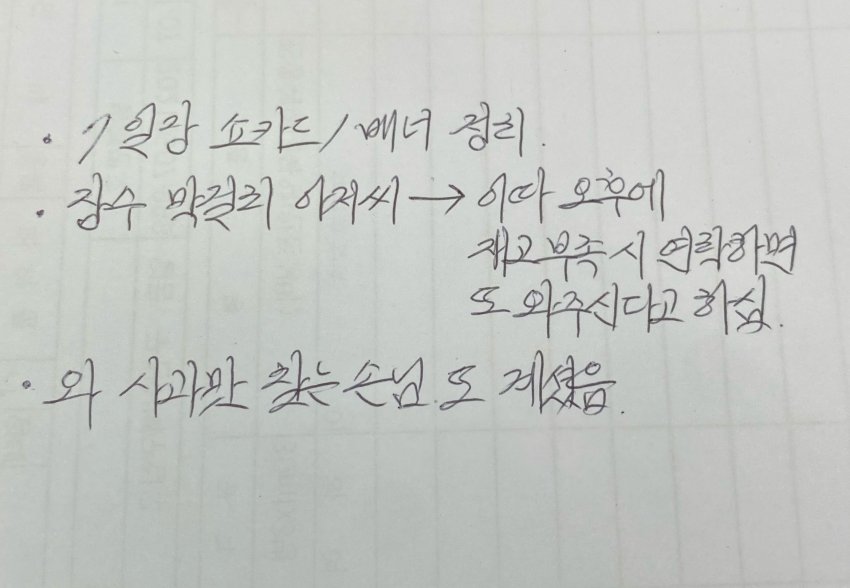 · 1일장 쇼카드/배너 정리.
· 장수 막걸리 아저씨 → 이따 오후에
재고 부족 시 연락하면
또 와주신다고 하심.
· 와 사과만 찾는 손님 또 계셨음.